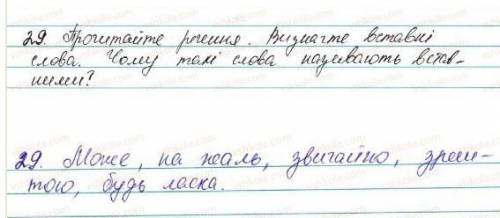 29. Прочитайте речення. Визначте вставні
слова. Чому такі слова називають встав-
ними?
29. Може, на жаль, звичайно, зреш-
тою, будь ласка.